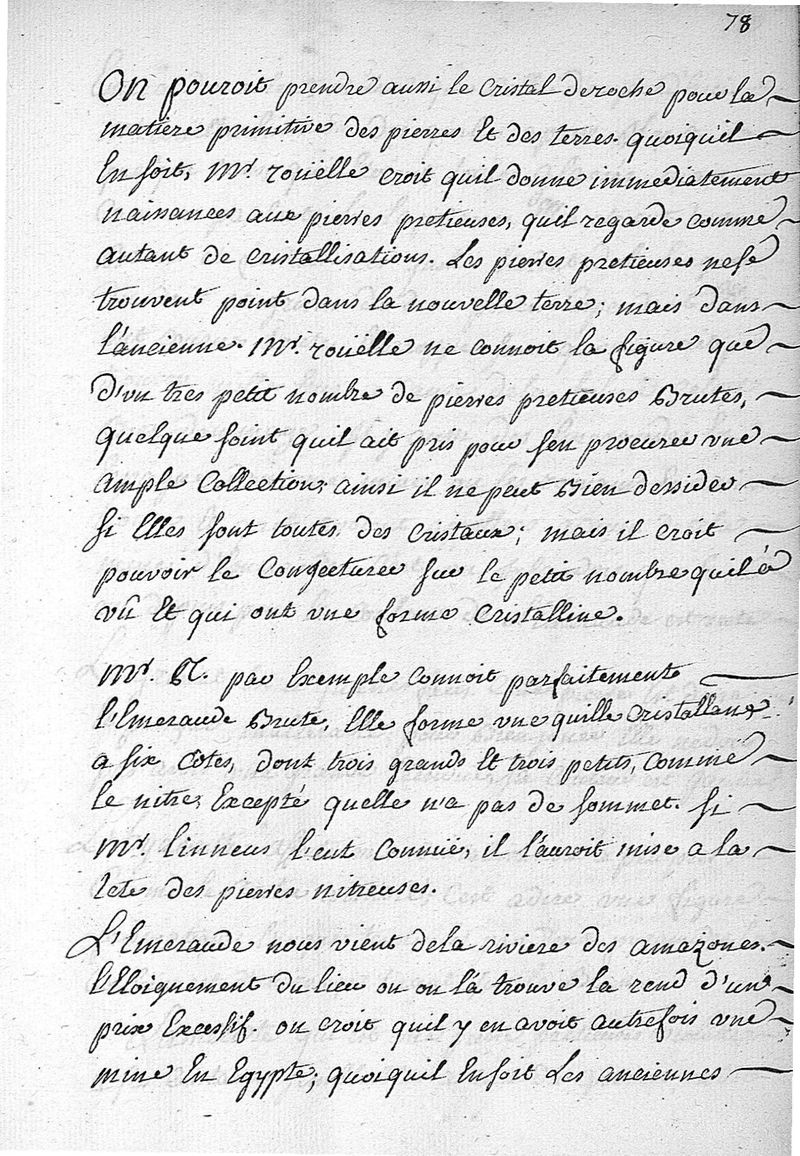 78
On pouroit prendre aussi le cristal deroche pour la
matiere primitive des pierres Et des terres. quoiqu'il
En soit, Mr. rouëlle croit quil donne immediatement
naissances aux pierres pretieuses, quil regarde comme
autant de cristallisations. Les pierres pretieuses nese
trouvent point dans la nouvelle terre; mais dans
l'ancienne. Mr. rouëlle ne connoit la figure que
d'un tres petit nombre de pierres pretieuses Brutes,
quelque soint quil ait pris pour s'en procurer une
ample Collection; ainsi il ne peut Bien dessider
si Elles sont toutes des cristaux; mais il croit
pouvoir le Conjecturer sur le petit nombre quil à
vû Et qui ont une forme Cristalline.
Mr. R. par Exemple connoit parfaitement
l'Emeraude Brute. Elle forme une quille cristallane
a six côtes, dont trois grands Et trois petits, comme
le nitre, Excepté quelle n'a pas de sommet. si
Mr. linneus l'eut Connuë, il l'auroit mise a la
tete des pierres nitreuses.
L'Emeraude nous vient dela riviere des amazones.
l'Eloignement du lieu ou on la trouve la rend d'un
prix Excessif. on croit quil y en avoit autrefois une
mine En Egypte; quoiquil Ensoit Les anciennes